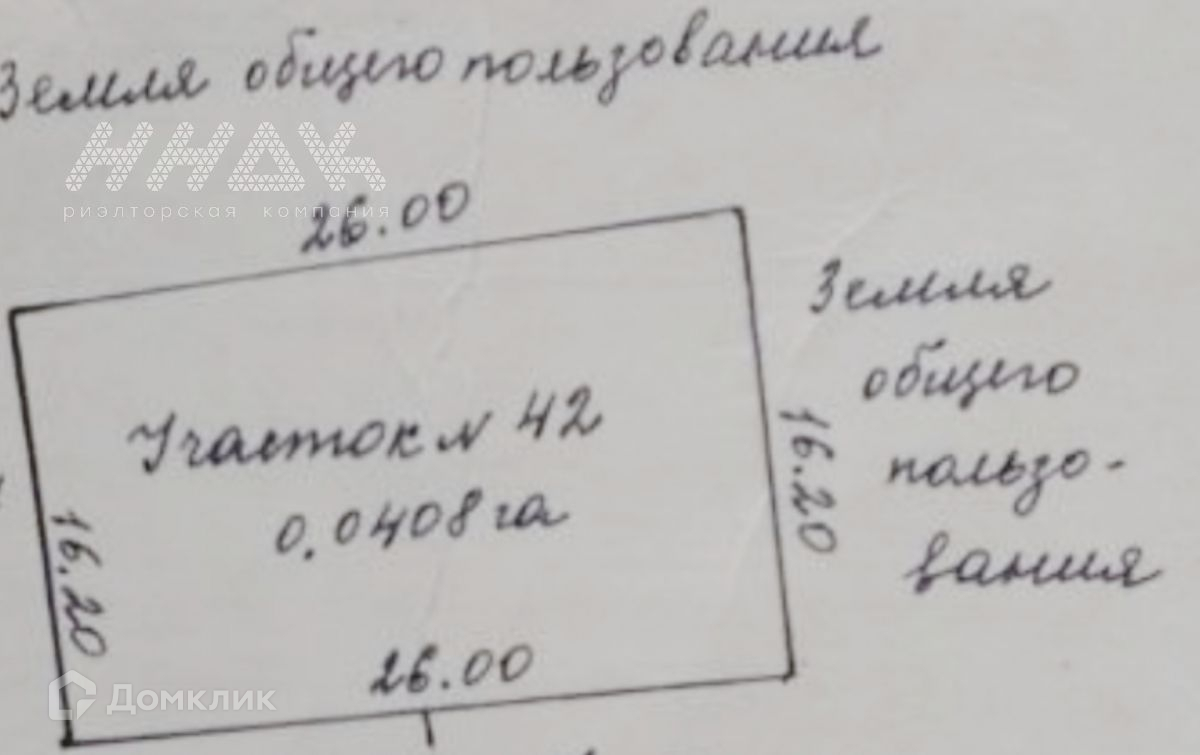 Земля общего пользования
ННДК
риэлторская компания
26.00
Земля
общего
пользо-
вания
Участок N 42
0.0408 га
16.20
16.20
26.00
Домклик